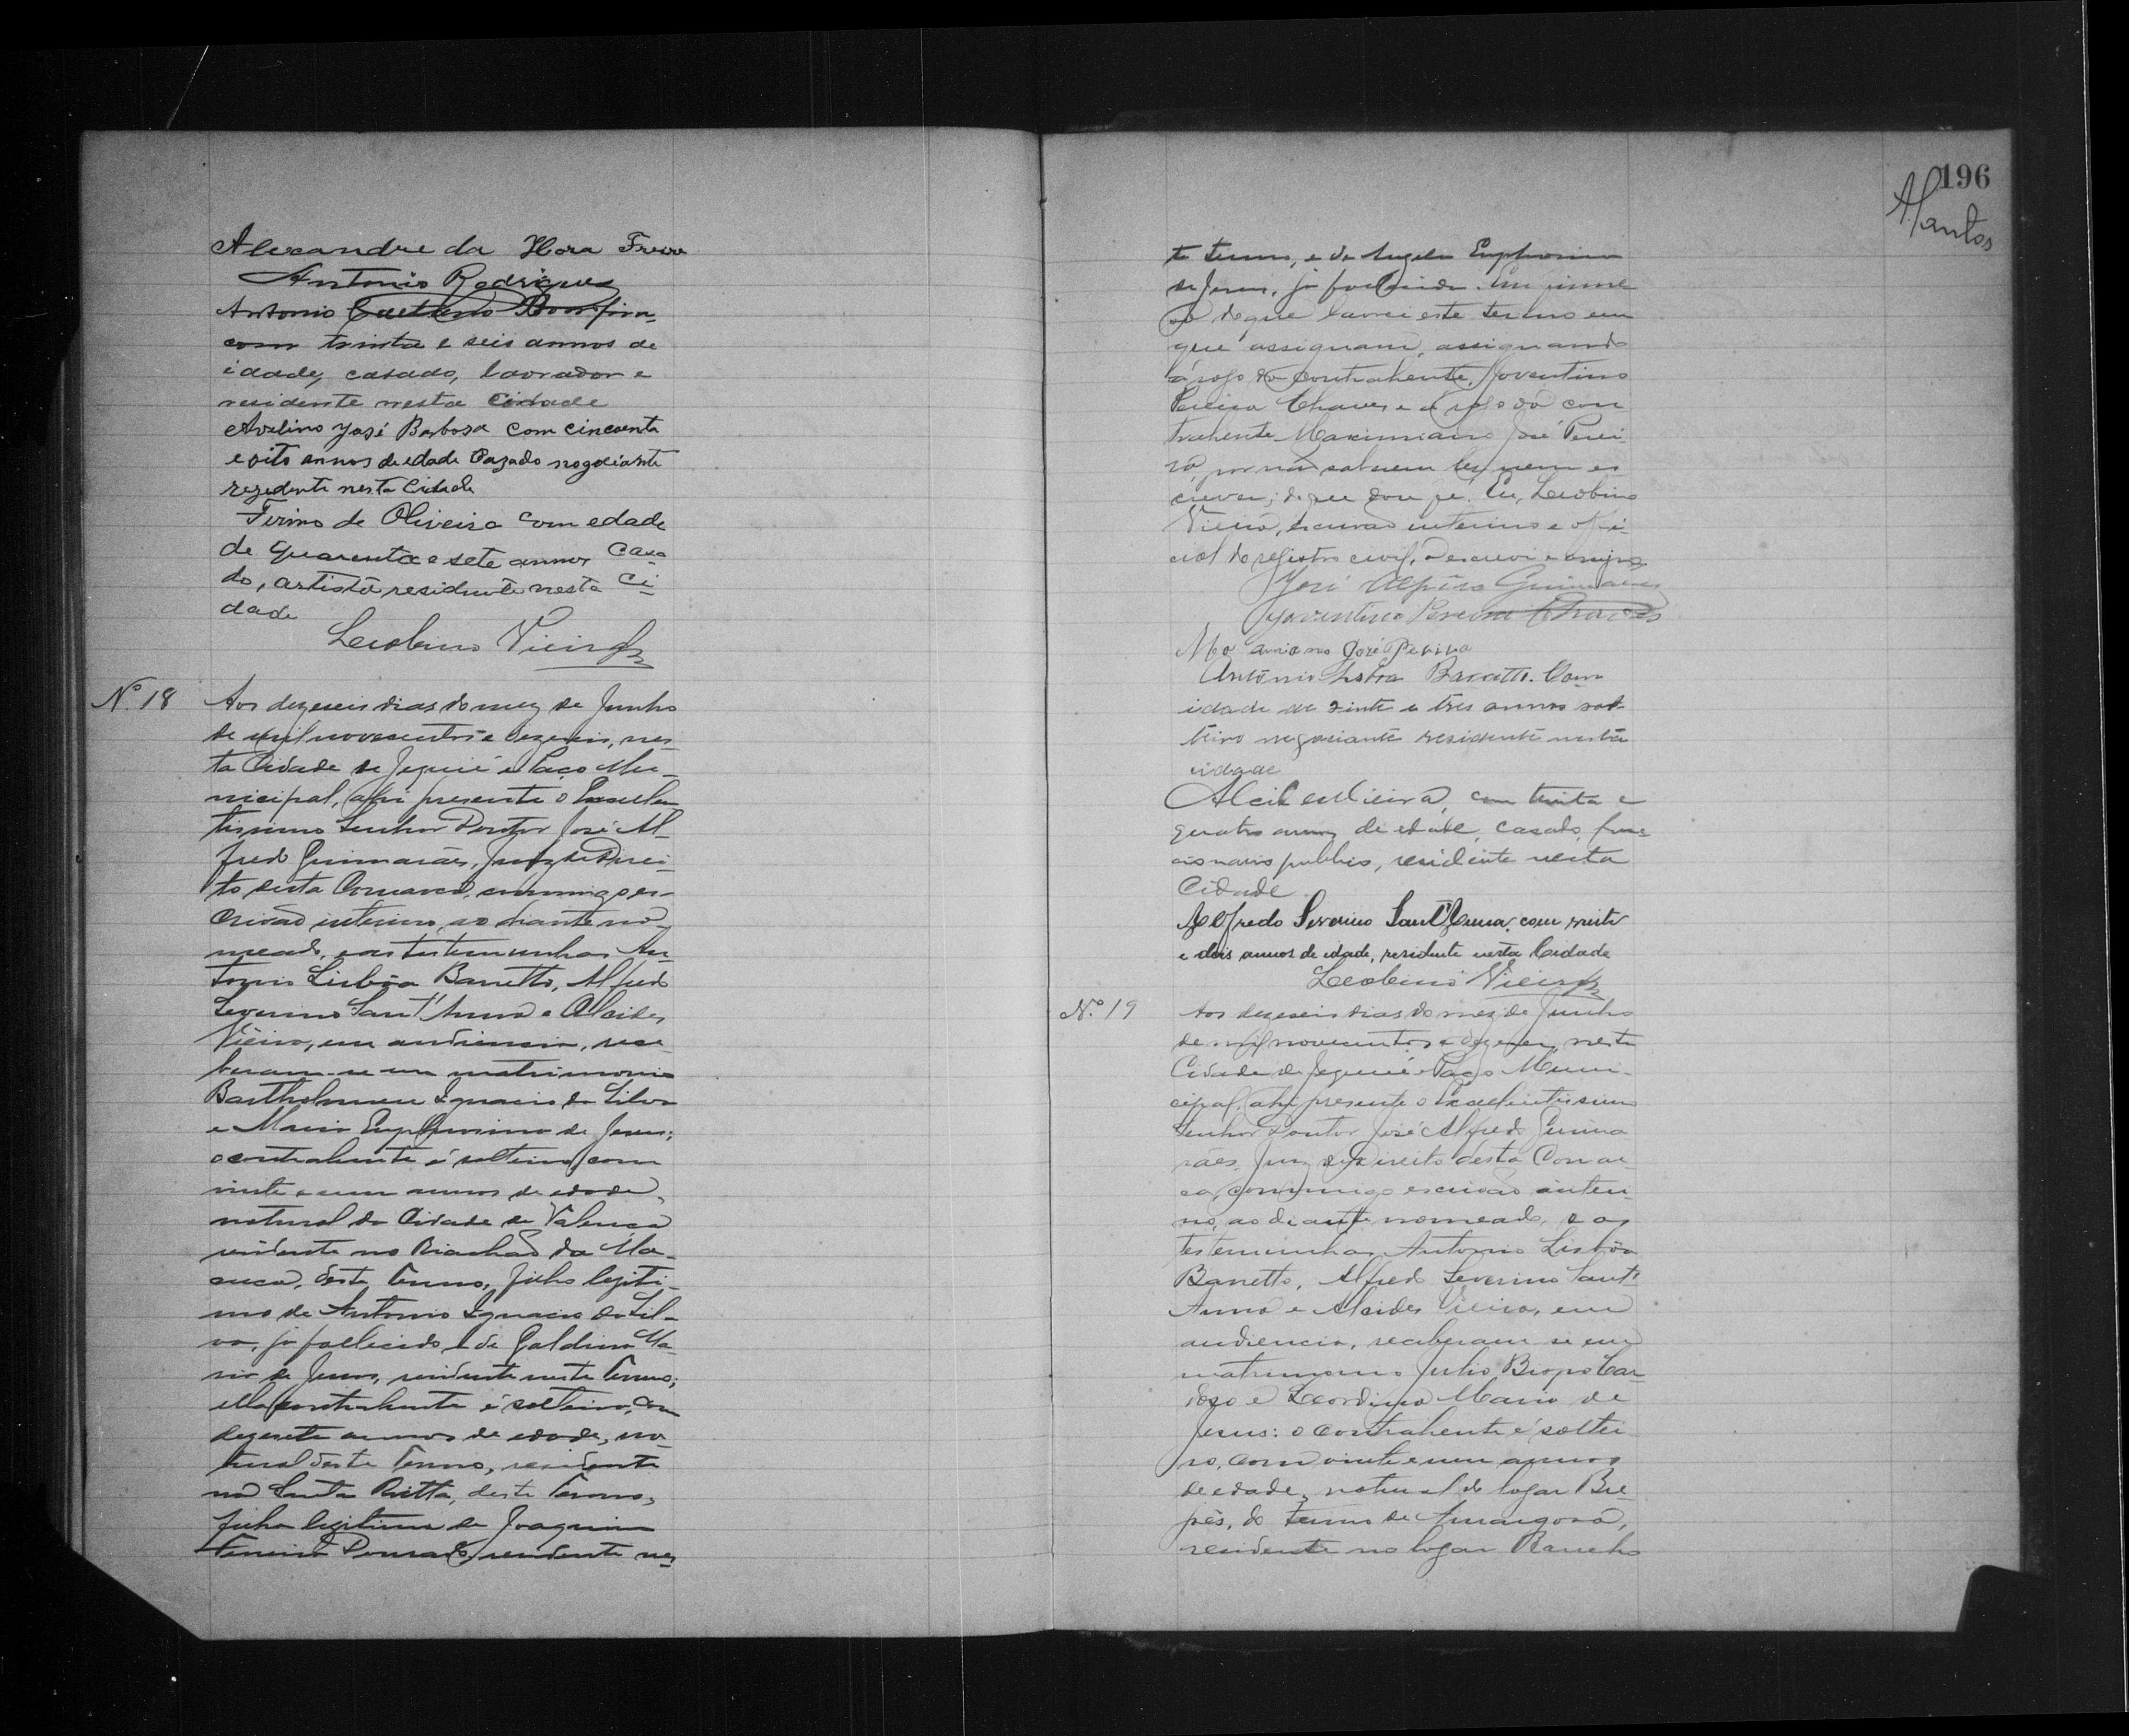 Alexandre da Hora Freire
Antonio Rodrigues
Antonio Caetano Bomfim
com trinta e seis annos de
idade, casado, lavrador e
residente nesta cidade
Avelino José Barbosa com cincoenta
e oito annos de edade Cazado nogociante
rezedente nesta Cidade
Firino de Oliveira com edade
de quarenta e sete annos Casa-
do, artista residente nesta Ci-
dade
Leolino Vieira
Nº 18
Aos dezeseis dias do mez de Junho
de mil novecentos e dezeseis, nes-
ta Cidade de Jequié e Paço Mu-
nicipal, ahi presente o Excellen
tissimo Senhor Doutor José Al-
fredo Guimarães, Juiz de Direi-
to desta Comarca, commigo es-
crivão interino, ao diante no-
meado, e as testemunhas An-
tonio Lisbôa Barretto, Alfredo
Severino Sant'Anna e Alcides
Vieira, em audiencia, rece-
beram-se em matrimonio
Bartholomeu Ignacio da Silva
e Maria Euphrosina de Jesus;
o contrahente é solteiro, com
vinte e um annos de edade,
natural da Cidade de Valença
residente no Riachão da
deste Termo, filho legiti-
mo de Antonio Ignacio da Sil-
va, já fallecido e de Galdina Ma-
ria de Jesus, residente neste Termo;
ella contrahente é solteira, com
dezesete annos de edade, na-
tural deste Termo, residente
na Santa Ritta, deste Termo,
filha legitima de Joaquim
residente nes-
196
ASantos
te termo, e de Angela Euphrosina
de Jesus, já fallecida. Em firme
sa de que lavrei este termo em
que assignam, assignando
á rogo do contrahente, Joventino
Pereira Chaves e a rogo da con
trahente Maximiano José Perei-
ra, por não saberem ler nem es
crever; do que dou fé. Eu, Leolino
Vieira, escrivão interino e offi-
cial do registro civil, o escrevi e assigno
José Alfredo Guimarães
Joventino Pereira Chaves
José Pereira
Antônio Lisbôa Barretto. Com
idade de vinte e tres annos sol-
teiro negociante residente nesta
cidade
Alcides Vieira, com trinta e
quatro annos de edade, casado, func
cionario publico, residente nesta
Cidade
Alfredo Severino Sant'Anna, com vinte
e dois annos de idade, residente nesta Cidade
Leolino Vieira
Nº 19
Aos dezeseis dias do mez de Junho
de mil novecentos e dezeseis, nesta
Cidade de Jequié e Paço Muni-
cipal, ahi presente o Excellentissimo
Senhor Doutor José Alfredo Guima
rães, Juiz de Direito desta Comar
ca, commigo escrivão interi
no, ao diante nomeado, e as
testemunhas Antonio Lisbôa
Barretto, Alfredo Severino Sant'
Anna e Alcides Vieira, em
audiencia, receberam se em
matrimonio Julio Car
doso e Maria de
Jesus: o contrahente é soltei
ro, com vinte e um annos
de edade, natural do logar Bre-
jões, do termo de Amargosa,
residente no logar Rancho